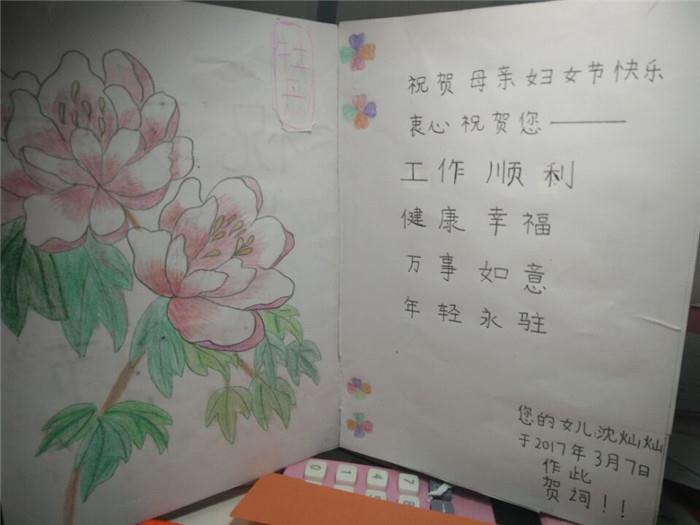 牡丹
祝贺母亲妇女节快乐
衷心祝贺您———
工作顺利
健康幸福
万事如意
年轻永驻
您的女儿:沈灿灿
于2017年3月7日
作此
贺词!!
0
1
4
7